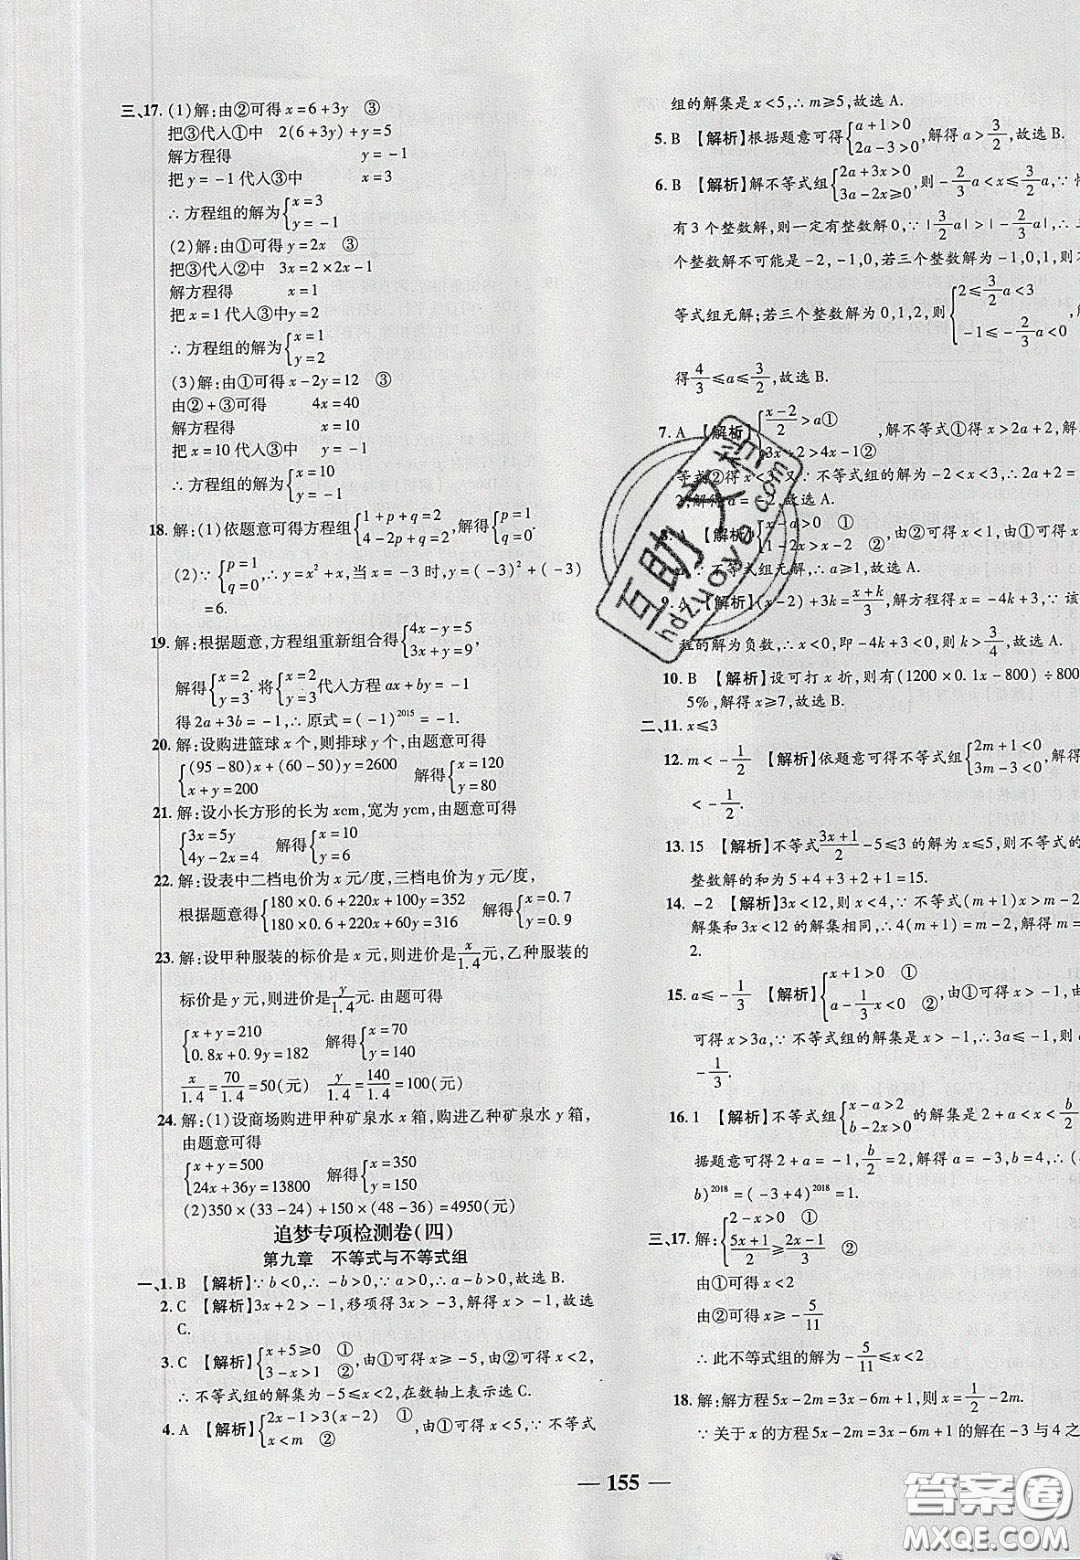 三、17. (1)解:由②可得 x=6+3y ③
把③代入①中 2(6+3y)+y=5
解方程得 y=-1
把 y=-1代入③中 x=3
∴ 方程组的解为{x=3 y=-1
(2)解:由①可得 y=2x ③
把③代入②中 3x=2×2x-1
解方程得 x=1
把 x=1代入③中 y=2
∴ 方程组的解为{x=1 y=2
(3)解:由①可得 x-2y=12 ③
由②+③可得 4x=40
解方程得 x=10
把 x=10代入③中 y=-1
∴ 方程组的解为{x=10 y=-1
18. 解:(1)依题意可得方程组{1+p+q=2 4-2p+q=2,解得{p=1 q=0.
(2)∵{p=1 q=0,∴y=x²+x,当 x=-3时,y=(-3)²+(-3)
=6.
19. 解:根据题意,方程组重新组合得{4x-y=5 3x+y=9,
解得{x=2 y=3.将{x=2 y=3代入方程 ax+by=-1,
得 2a+3b=-1,∴原式=(-1)²⁰¹⁵=-1.
20. 解:设购进篮球 x 个,则排球 y 个,由题意可得
{(95-80)x+(60-50)y=2600 x+y=200 解得{x=120 y=80
21. 解:设小长方形的长为 xcm,宽为 ycm,由题意可得
{3x=5y 4y-2x=4 解得{x=10 y=6
22. 解:设表中二档电价为 x 元/度,三档电价为 y 元/度,
根据题意得{180×0.6+220x+100y=352 180×0.6+220x+60y=316 解得{x=0.7 y=0.9
23. 解:设甲种服装的标价是 x 元,则进价是x/1.4元,乙种服装的
标价是 y 元,进价是y/1.4元.由题可得
{x+y=210 0.8x+0.9y=182 解得{x=70 y=140
x/1.4=70/1.4=50(元) y/1.4=140/1.4=100(元)
24. 解:(1)设商场购进甲种矿泉水 x 箱,购进乙种矿泉水 y 箱,
由题意可得
{x+y=500 24x+36y=13800 解得{x=350 y=150
(2)350×(33-24)+150×(48-36)=4950(元)
追梦专项检测卷(四)
第九章 不等式与不等式组
一、1. B 【解析】∵b<0,∴-b>0,∵a>0,∴a-b>0,故选 B.
2. C 【解析】3x+2>-1,移项得3x>-3,解得 x>-1,故选
C.
3. C 【解析】{x+5≥0 ① 3-x>1 ②,由①可得 x≥-5,由②可得 x<2,
∴ 不等式组的解集为-5≤x<2,在数轴上表示选 C.
4. A 【解析】{2x-1>3(x-2) ① x<m ②,由①可得 x<5,∵不等式
组的解集是 x<5,∴m≥5,故选 A.
5. B 【解析】根据题意可得{a+1>0 2a-3>0,解得 a>3/2,故选 B.
6. B 【解析】解不等式组{2a+3x>0 3a-2x≥0,则-2/3a<x≤3/2a,∵
有3个整数解,则一定有整数解0,∵|3/2a|>|-2/3a|,
个整数解不可能是-2,-1,0;若三个整数解为-1,0,1,则
等式组无解;若三个整数解为0,1,2,则{2≤3/2a<3 -1≤-2/3a<0,
得4/3≤a≤3/2,故选 B.
7. A 【解析】{x-2/2>a① 3x-2>4x-1②,解不等式①得 x>2a+2,解
等式②得 x<3,又∵不等式组的解为-2<x<3,∴2a+2=
2,解得 a=-2,故选 A.
【解析】{x-a>0 ① 1-2x>x-2 ②,由②可得 x<1,由①可得 x
a,∵不等式组无解,∴a≥1,故选 A.
9. A 【解析】(x-2)+3k=x+k/3,解方程得 x=-4k+3,∵该
程的解为负数,∴x<0,即-4k+3<0,则 k>3/4,故选 A.
10. B 【解析】设可打 x 折,则有(1200×0.1x-800)÷800
5%,解得 x≥7,故选 B.
二、11. x≤3
12. m<-1/2 【解析】依题意可得不等式组{2m+1<0 3m-3<0,解得
<-1/2.
13. 15 【解析】不等式3x+1/2-5≤3的解为 x≤5,则不等式的
整数解的和为5+4+3+2+1=15.
14. -2 【解析】3x<12,则 x<4,∵不等式(m+1)x>m-2
解集和3x<12的解集相同,∴4(m+1)=m-2,解得 m=
2.
15. a≤-1/3 【解析】{x+1>0 ① a-1/3x<0 ②,由①可得 x>-1,由
可得 x>3a,∵不等式组的解集是 x>-1,∴3a≤-1,则
-1/3.
16. 1 【解析】不等式组{x-a>2 b-2x>0的解集是2+a<x<b/2
据题意可得2+a=-1,b/2=2,解得 a=-3,b=4,∴(
b)²⁰¹⁸=(-3+4)²⁰¹⁸=1.
三、17. 解:{2-x>0 ① 5x+1/2≥2x-1/3 ②
由①可得 x<2
由②可得 x≥-5/11
∴ 此不等式组的解为-5/11≤x<2
18. 解:解方程5x-2m=3x-6m+1,则 x=1/2-2m.
∵ 关于 x 的方程5x-2m=3x-6m+1的解在-3与4之
— 155 —
互助文档
hdzuoye.com
答案圈
MXQE.COM